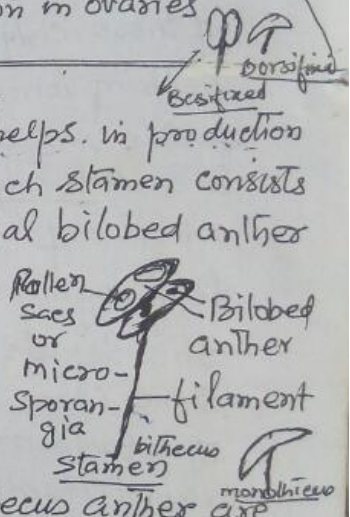 on in ovaries
Dorsifixed
Besifixed
helps. in production
ch stamen consists
al bilobed anther
Pollen
sacs
or
micro-
sporan-
gia
Bilobed
anther
filament
bithecus
Stamen
monothicus
ecus anther are